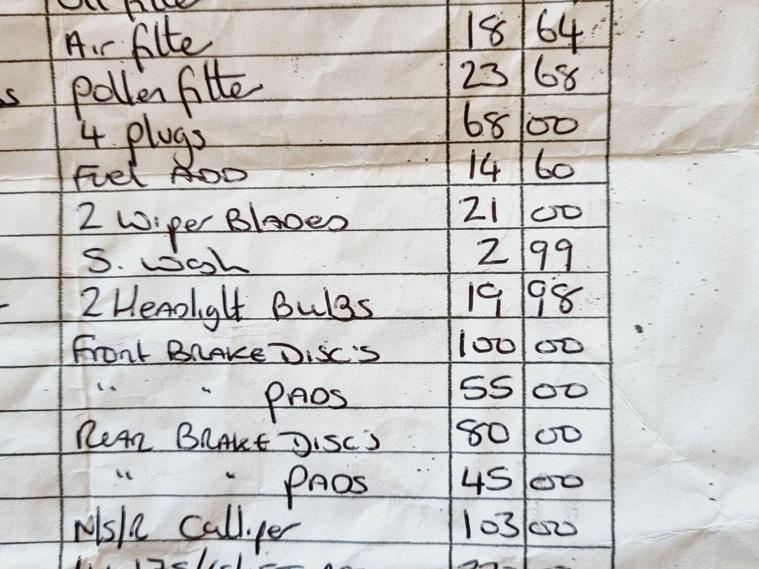 Air filte 18 64
s pollen filter 23 68
4 plugs 68 00
Fuel ADD 14 60
2 Wiper Blades 21 00
S. wash 2 99
2 Headlight Bulbs 19 98
Front BRAKE DISC'S 100 00
" " PADS 55 00
Rear BRAKE DISC'S 80 00
" " PADS 45 00
N/S/R Calliper 103 00